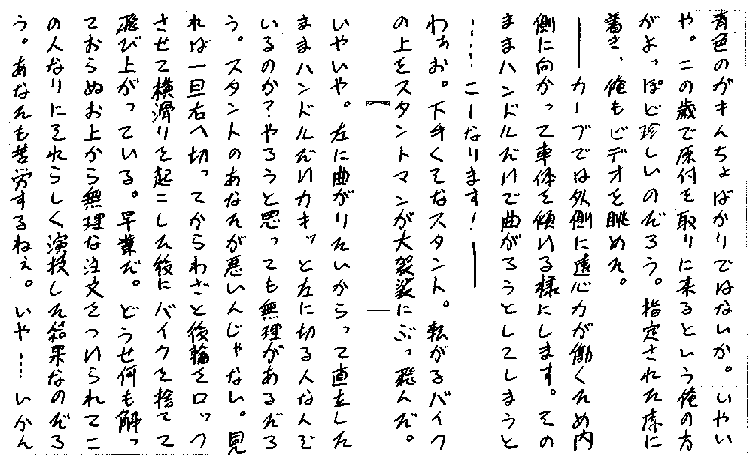 青色のがきんちょばかりではないか。いやい
や。この歳で原付を取りに来るという俺の方
がよっぽど珍しいのだろう。指定された席に
着き、俺もビデオを眺めた。
――カーブでは外側に遠心力が働くため内
側に向かって車体を傾ける様にします。その
ままハンドルだけで曲がろうとしてしまうと
……こーなります!――
わぁお。下手くそなスタント。転がるバイク
の上をスタントマンが大袈裟にぶっ飛んだ。
いやいや。左に曲がりたいからって直立した
ままハンドルだけカキッと左に切る人なんて
いるのか?やろうと思っても無理があるだろ
う。スタントのあなたが悪いんじゃない。見
れば一旦右へ切ってからわざと後輪をロック
させて横滑りを起こした後にバイクを捨てて
飛び上がっている。早業だ。どうせ何も解っ
ておらぬお上から無理な注文をつけられてこ
の人なりにそれらしく演技した結果なのだろ
う。あなたも苦労するねぇ。いや……いかん